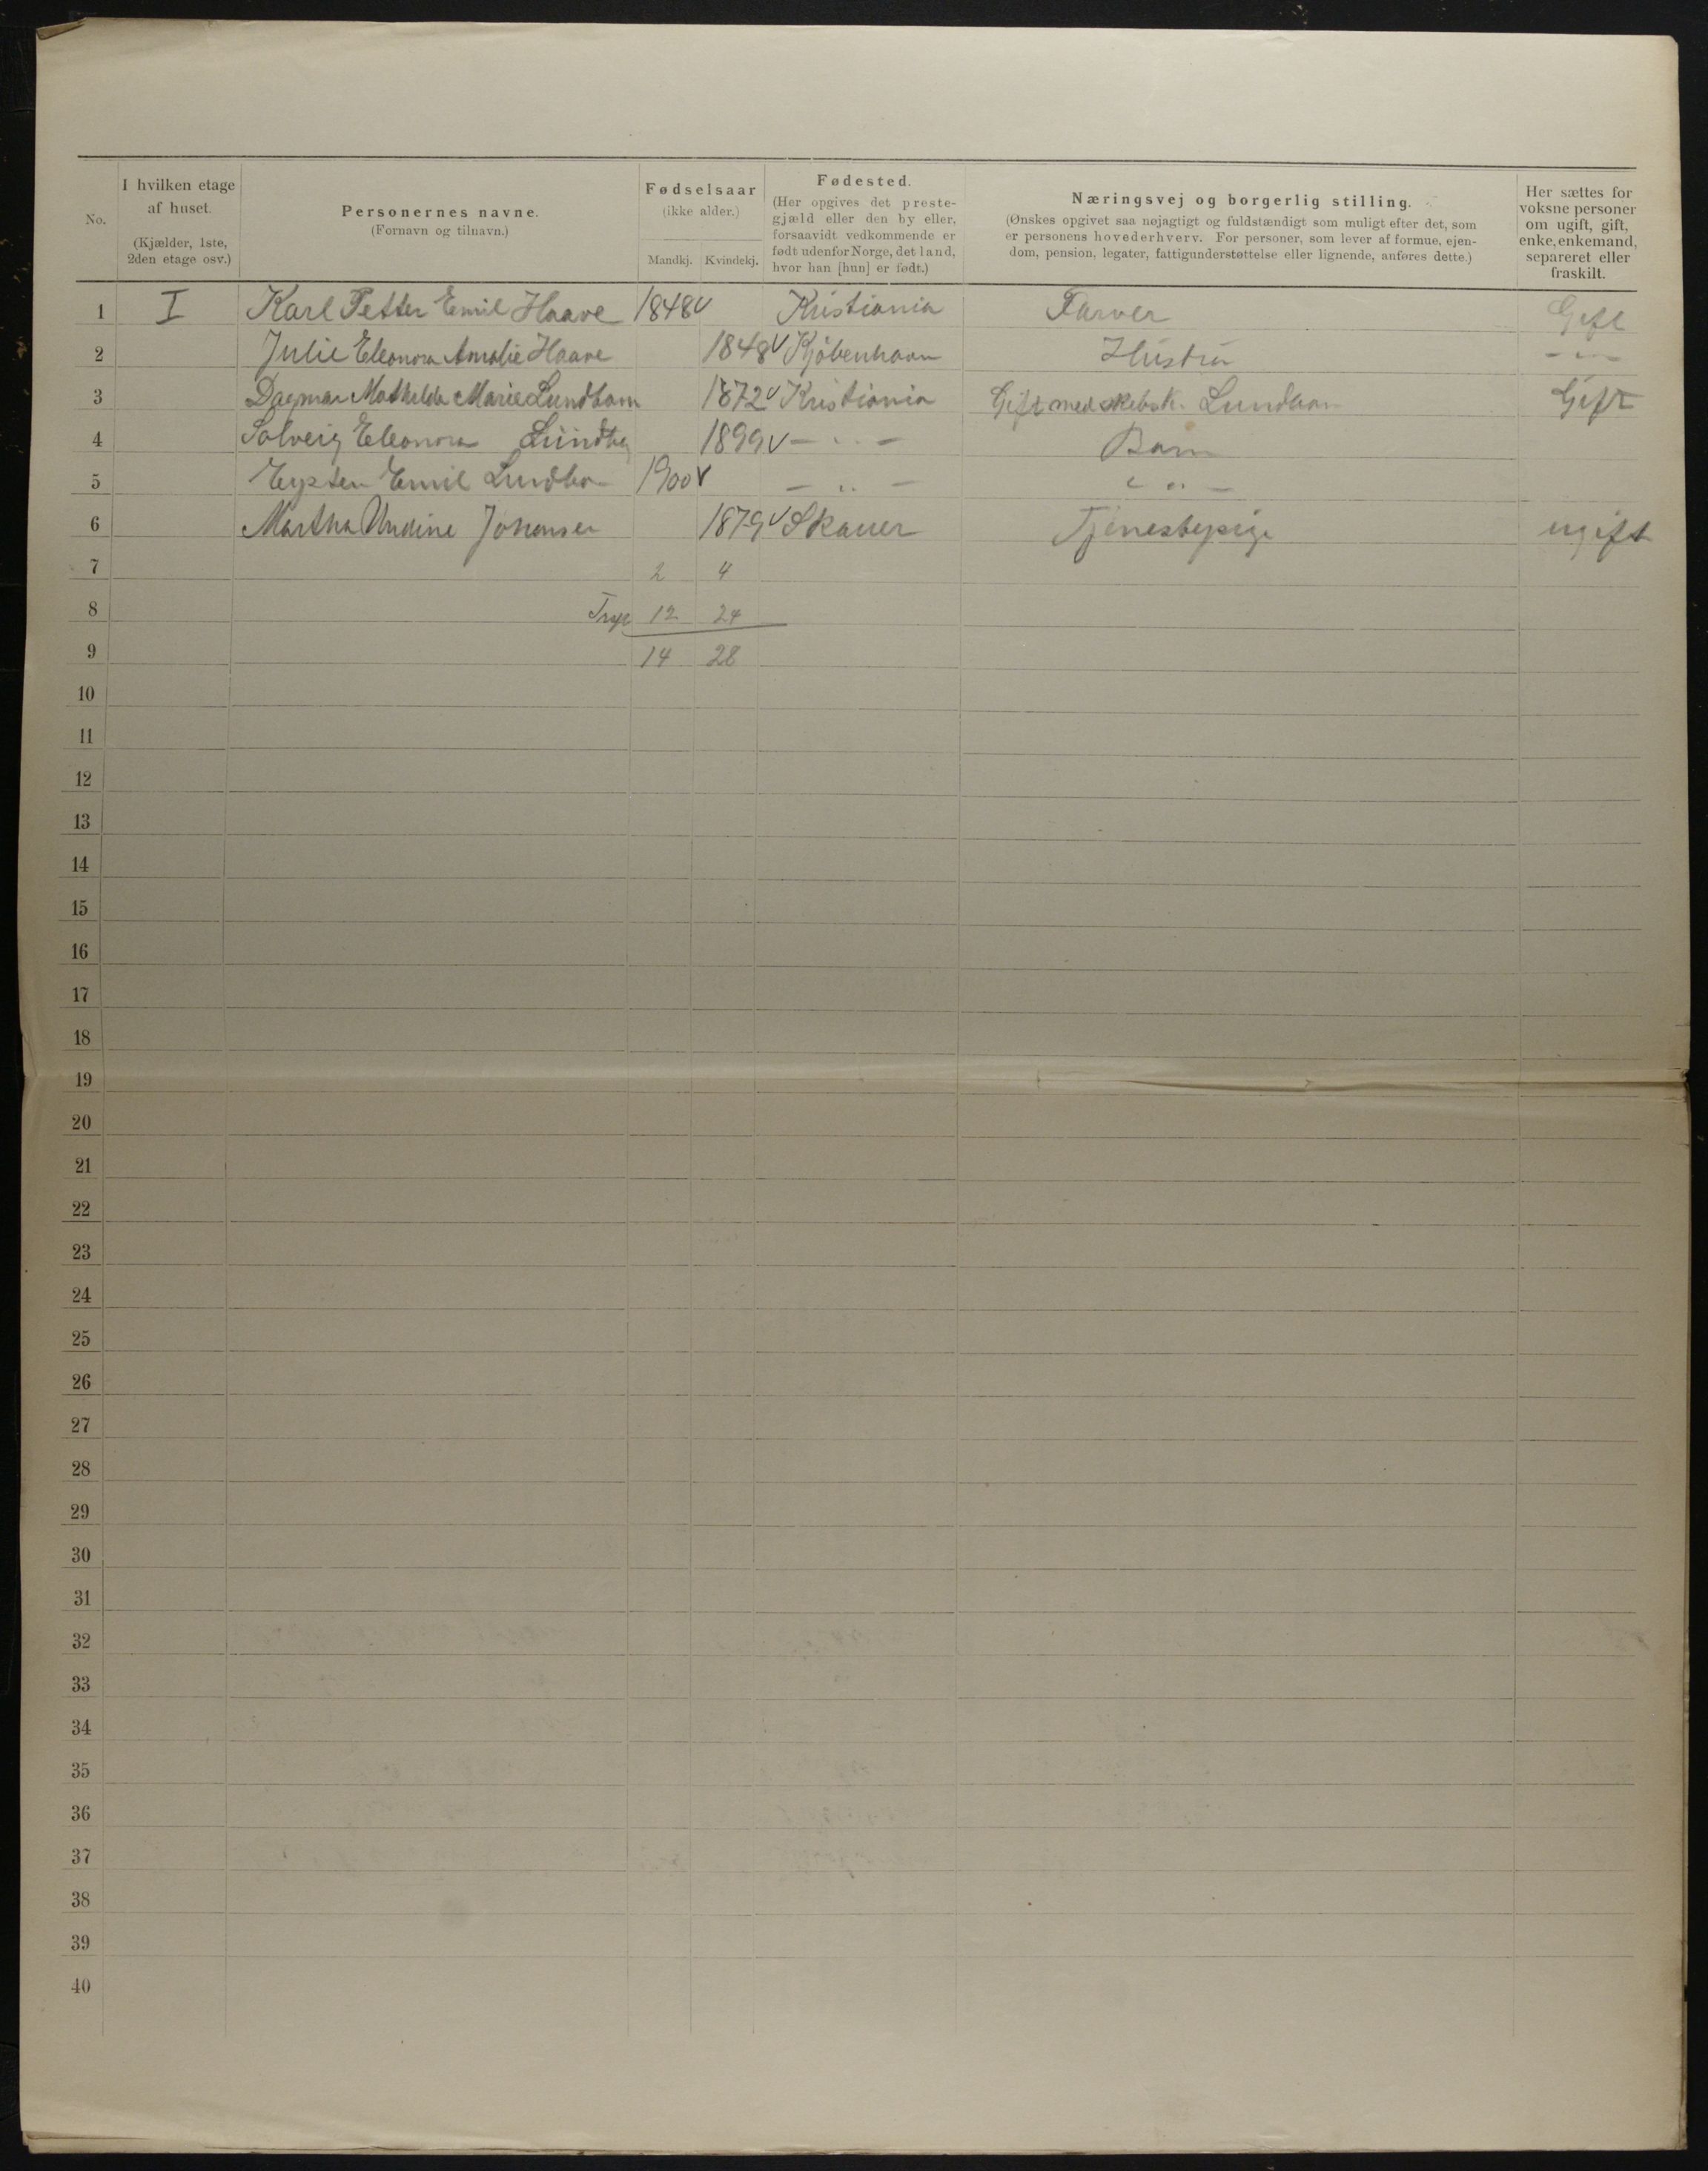 No.
I hvilken etage af huset. (Kjælder, 1ste, 2den etage osv.)
Personernes navne. (Fornavn og tilnavn.)
Fødselsaar (ikke alder.) Mandkj. Kvindekj.
Fødested. (Her opgives det prestegjæld eller den by eller, forsaavidt vedkommende er født udenfor Norge, det land, hvor han [hun] er født.)
Næringsvej og borgerlig stilling. (Ønskes opgivet saa nøjagtigt og fuldstændigt som muligt efter det, som er personens hovederhverv. For personer, som lever af formue, ejendom, pension, legater, fattigunderstøttelse eller lignende, anføres dette.)
Her sættes for voksne personer om ugift, gift, enke, enkemand, separeret eller fraskilt.
1 I Karl Petter Emil Haave 1848 v Kristiania Farver Gift
2 Julie Eleonora Amalie Haave 1848 v Kjøbenhavn Hustru - " -
3 Dagmar Mathilde Marie Lundbom 1872 v Kristiania Gift med Gift
4 Solveig Eleonora 1899 v - " - Barn
5 Emil 1900 v - " - - " -
6 Martha Undine Johansen 1879 v Skauer Tjenestepige ugift
7 2 4
8 12 24
9 14 28
10
11
12
13
14
15
16
17
18
19
20
21
22
23
24
25
26
27
28
29
30
31
32
33
34
35
36
37
38
39
40